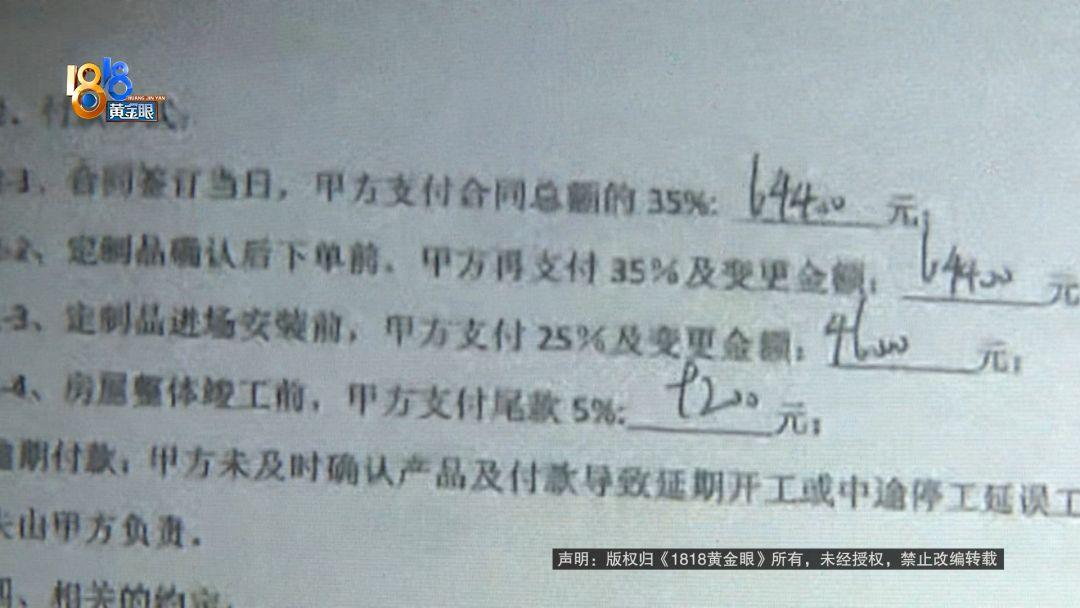 1818
HUANG JIN YAN
黄金眼
付款方式:
-1、合同签订当日，甲方支付合同总额的 35%: 64400 元;
-2、定制品确认后下单前，甲方再支付 35%及变更金额: 64400 元
-3、定制品进场安装前，甲方支付 25%及变更金额: 46000 元;
-4、房屋整体竣工前，甲方支付尾款 5%: 9200 元;
逾期付款: 甲方未及时确认产品及付款导致延期开工或中途停工延误工
失由甲方负责。
四、相关的约定:
声明：版权归《1818黄金眼》所有，未经授权，禁止改编转载